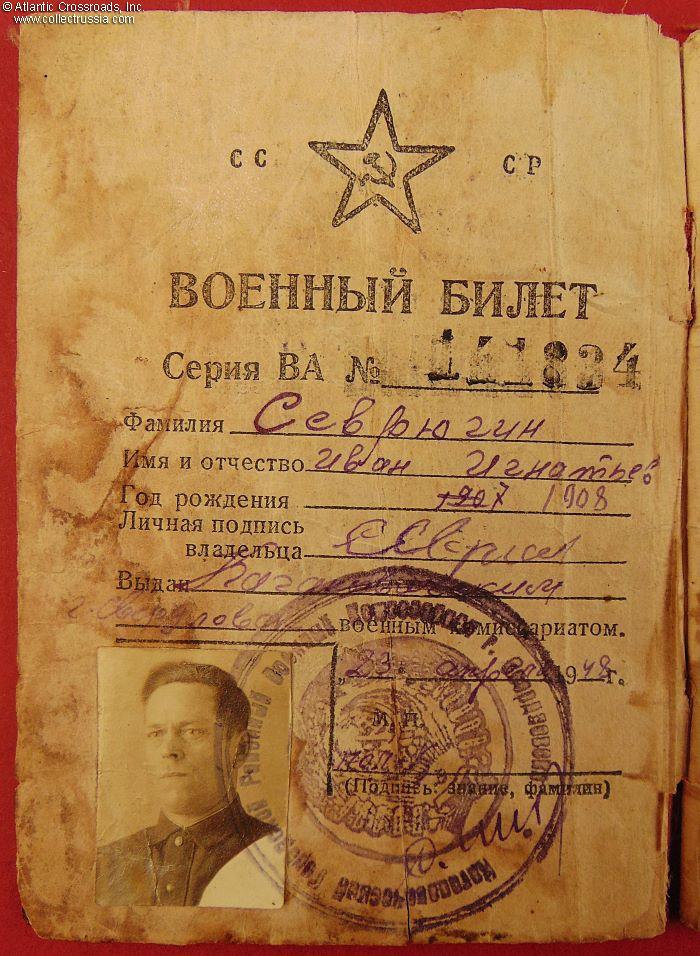 © Atlantic Crossroads, Inc.
www.collectrussia.com
СС СР
ВОЕННЫЙ БИЛЕТ
Серия ВА № 1834
Фамилия Севрюгин
Имя и отчество Иван Игнатьев
Год рождения 1907 1908
Личная подпись
владельца
Выдан Кагановическим
г. Свердлова военным комиссариатом.
„23 апреля 1948 г.
М. П.
(Подпись: звание, фамилия)